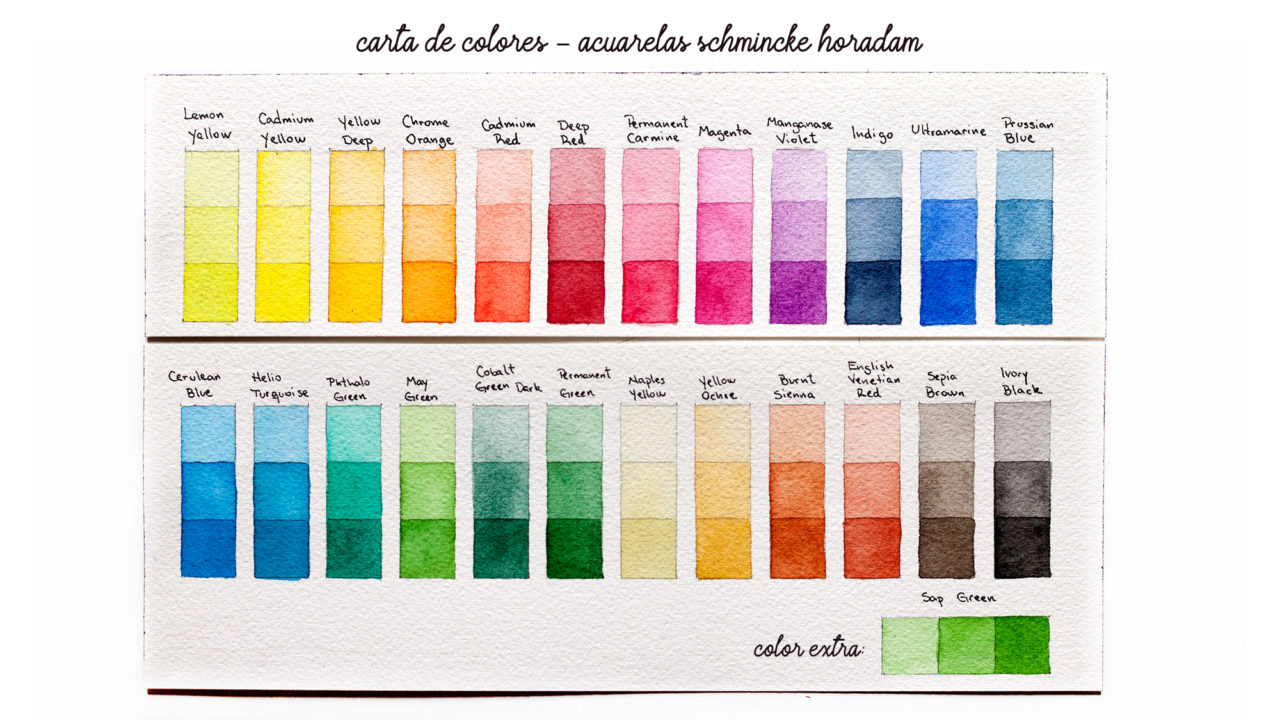 carta de colores – acuarelas schmincke horadam
Lemon
Yellow
Cadmium
Yellow
Yellow
Deep
Chrome
Orange
Cadmium
Red
Deep
Red
Permanent
Carmine
Magenta
Manganase
Violet
Indigo
Ultramarine
Prussian
Blue
Cerulean
Blue
Helio
Turquoise
Phthalo
Green
May
Green
Cobalt
Green Dark
Permanent
Green
Naples
Yellow
Yellow
Ochre
Burnt
Sienna
English
Venetian
Red
Sepia
Brown
Ivory
Black
Sap Green
color extra: